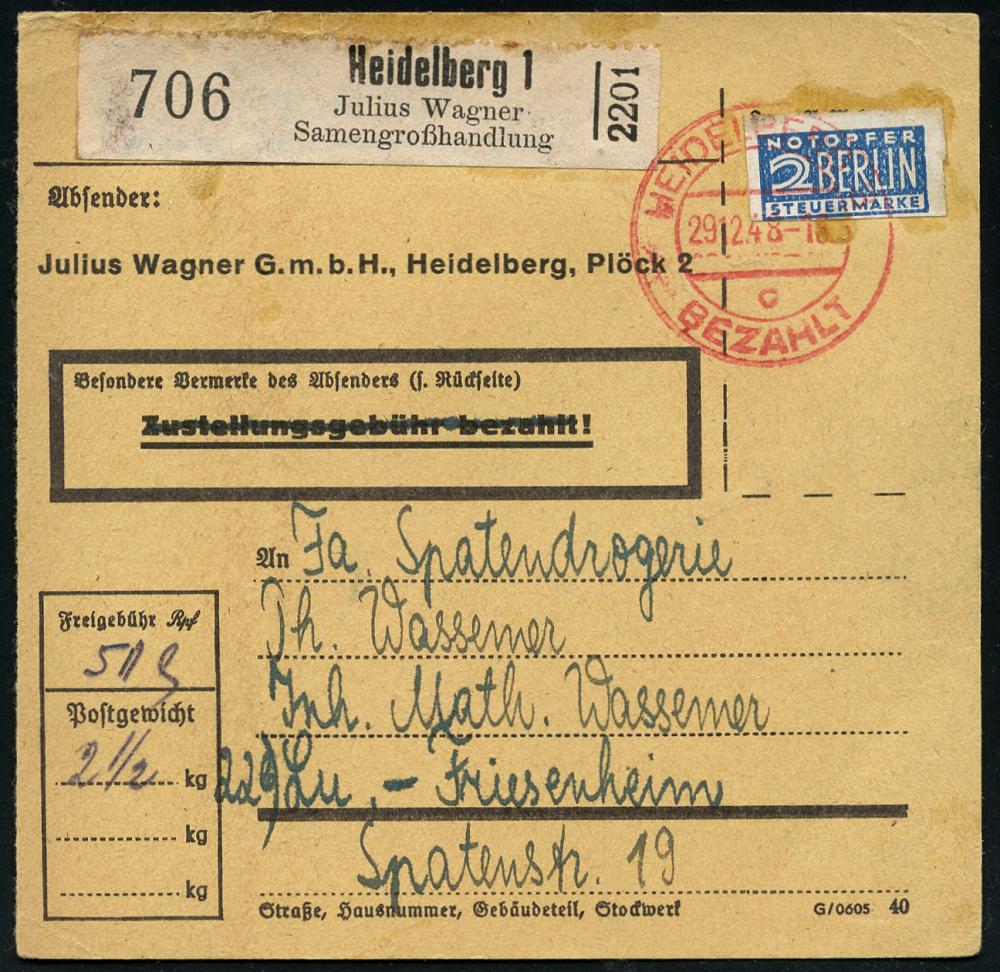 706
Heidelberg 1
Julius Wagner
Samengroßhandlung
2201
NOTOPFER
2 BERLIN
STEUERMARKE
HEIDELBERG
29.12.48-18
c
BEZAHLT
Absender:
Julius Wagner G.m.b.H., Heidelberg, Plöck 2
Besondere Vermerke des Absenders (s. Rückseite)
Zustellungsgebühr bezahlt!
An Fa. Spatendrogerie
Ph. Wassemer
Inh. Math. Wassemer
22b) Lu.- Friesenheim
Spatenstr. 19
Straße, Hausnummer, Gebäudeteil, Stockwerk
G/0605 40
Freigebühr Rpf
Postgewicht
2 1/2 kg
kg
kg